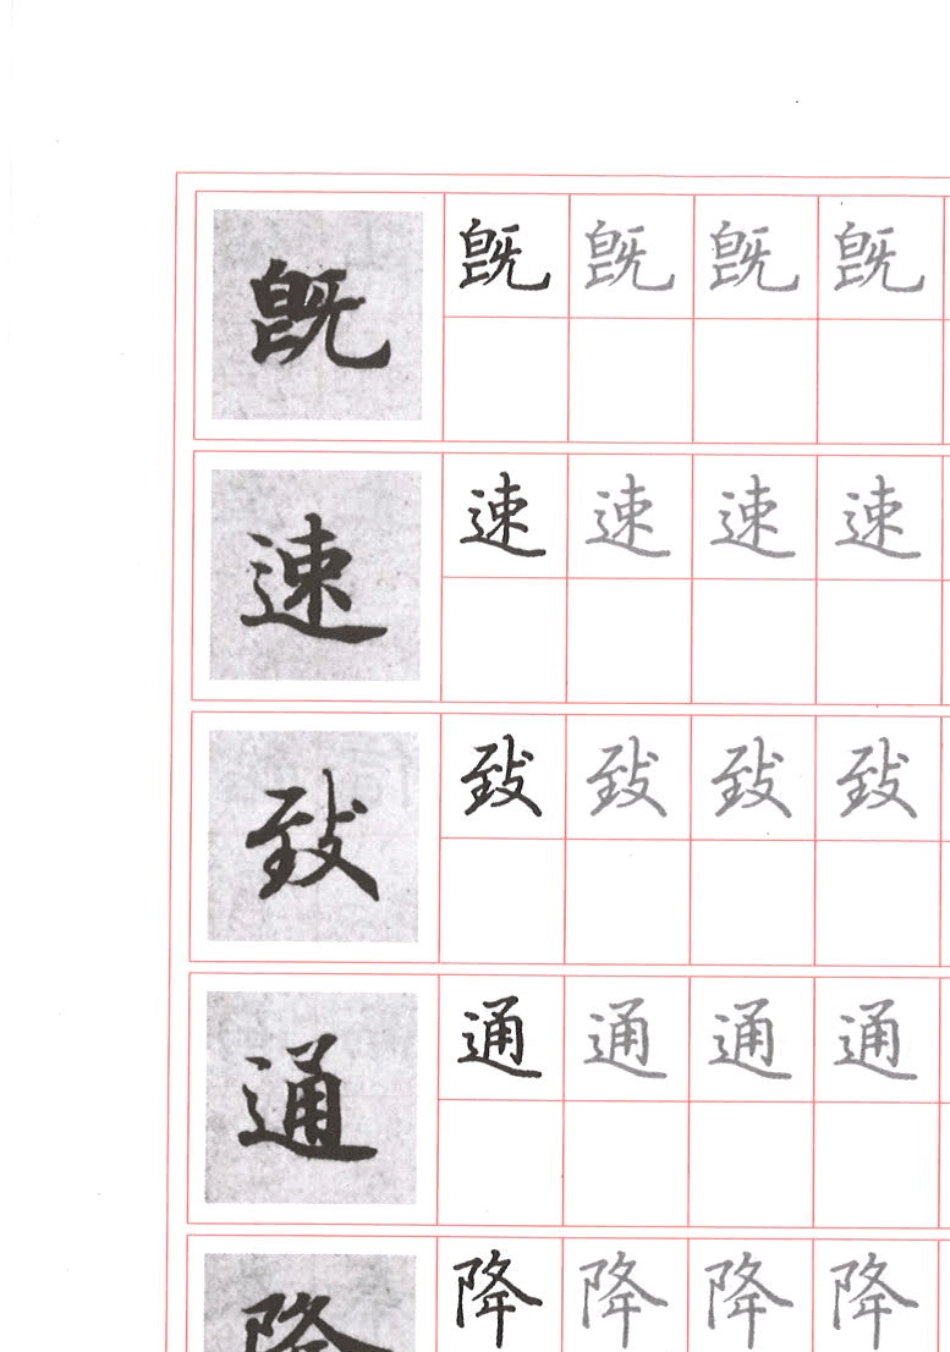 既 既 既 既 既
速 速 速 速 速
致 致 致 致 致
通 通 通 通 通
降 降 降 降 降